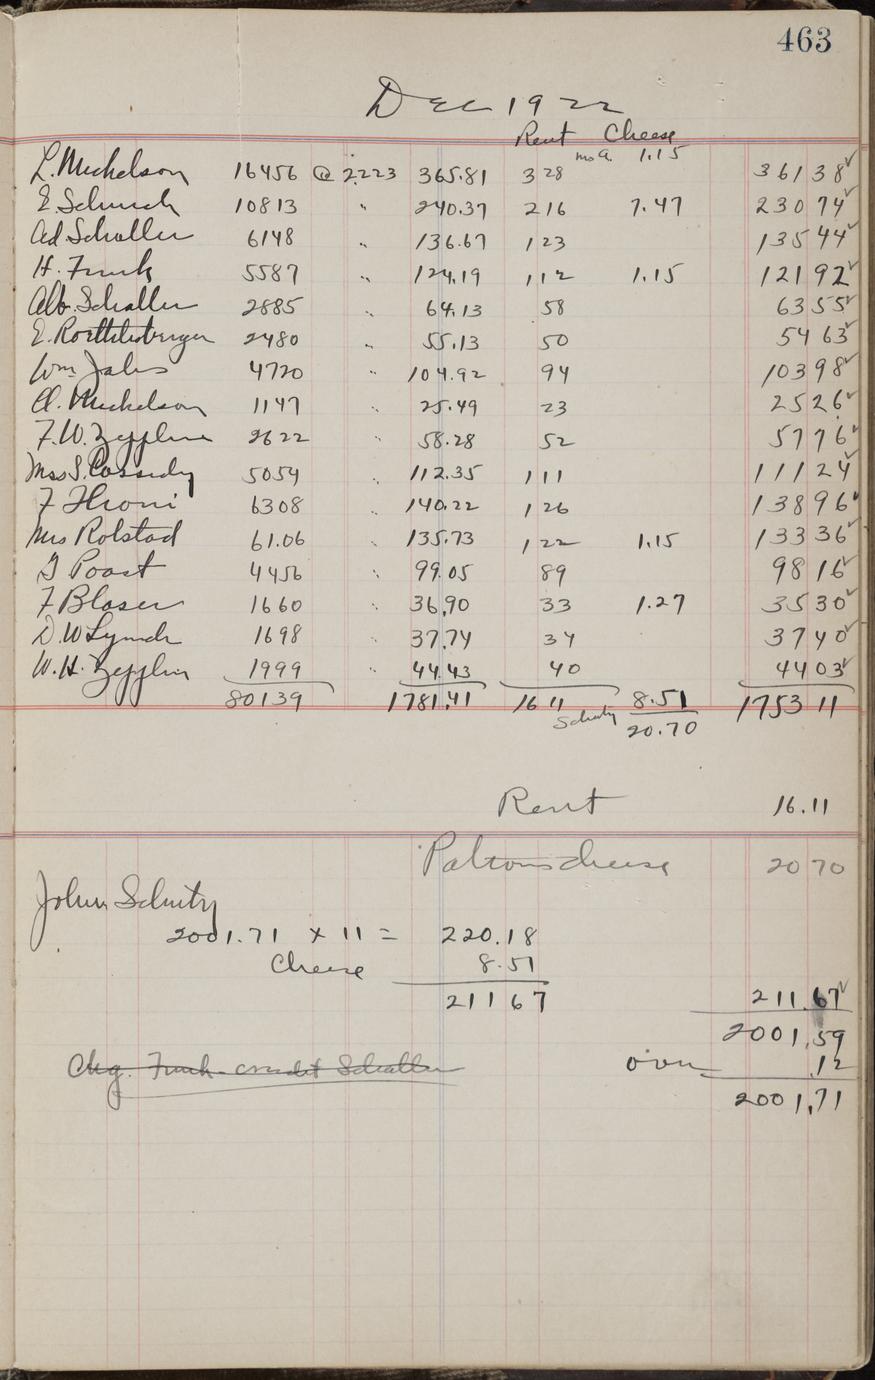 463
Dec 1922
Rent Cheese
L. Mickelson 16456 @ 2.223 365.81 328 mo a. 1.15 36138 ✓
E. Schurch 10813 " 240.37 216 7.47 23074 ✓
Ad. Schaller 6148 " 136.67 123 13544 ✓
H. Funk 5587 " 124.19 112 1.15 12192 ✓
Alb. Schaller 2885 " 64.13 58 6355 ✓
E. Roethlisberger 2480 " 55.13 50 5463 ✓
Wm Jahs 4720 " 104.92 94 10398 ✓
A. Mickelson 1147 " 25.49 23 2526 ✓
F.W. Zepplin 2622 " 58.28 52 5776 ✓
Mrs S. Cassidy 5054 " 112.35 111 11124 ✓
F Hroni 6308 " 140.22 126 13896 ✓
Mrs Rolstad 61.06 " 135.73 122 1.15 13336 ✓
G Poast 4456 " 99.05 89 9816 ✓
F Blaser 1660 " 36.90 33 1.27 3530 ✓
D.W Lynch 1698 " 37.74 34 3740 ✓
W.H. Zepplin 1999 " 44.43 40 4403 ✓
80139 1781.41 1611 8.51 1753 11
20.70
Rent 16.11
Patrons cheese 20 70
John
2001.71 x 11 = 220.18
Cheese 8.51
211 67 211.67 ✓
2001.59
Chg. Funk - credit Schaller over .12
2001.71